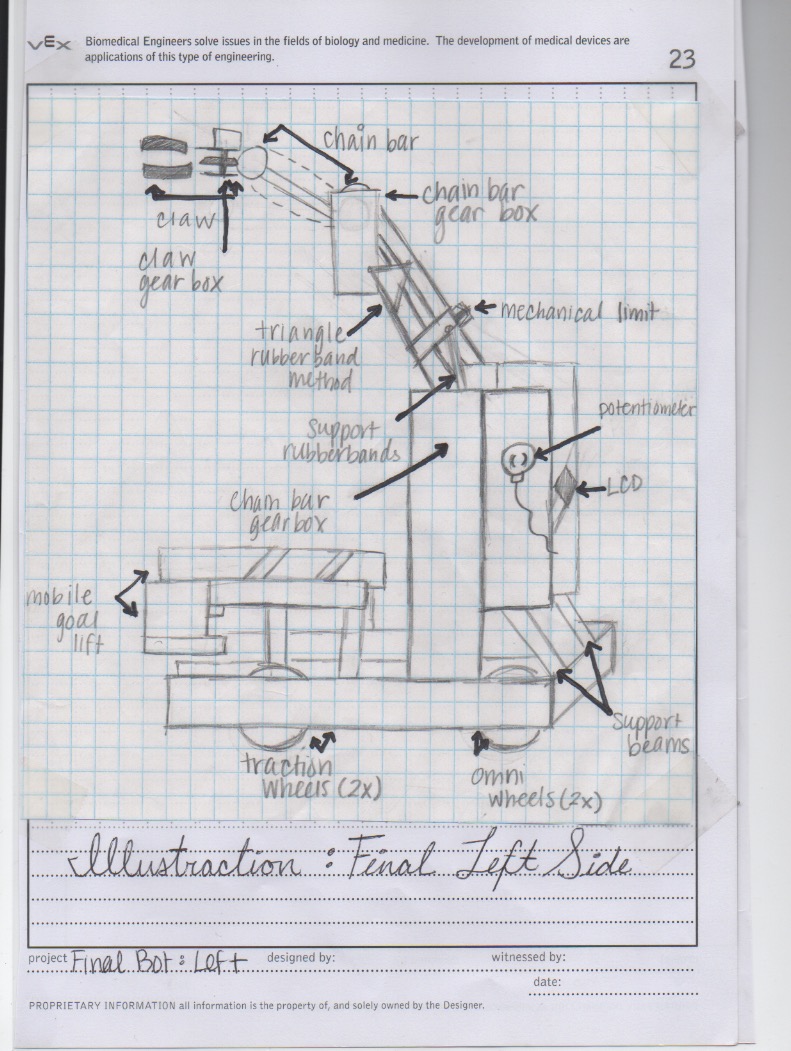 VEX
Biomedical Engineers solve issues in the fields of biology and medicine. The development of medical devices are
applications of this type of engineering.
23
chain bar
chain bar
gear box
claw
claw
gear box
mechanical limit
triangle
rubberband
method
potentiometer
support
rubberbands
LCD
chain bar
gearbox
mobile
goal
lift
support
beams
traction
wheels (2x)
omni
wheels (2x)
Illustraction : Final Left Side
project Final Bot : Left designed by: witnessed by:
date:
PROPRIETARY INFORMATION all information is the property of, and solely owned by the Designer.